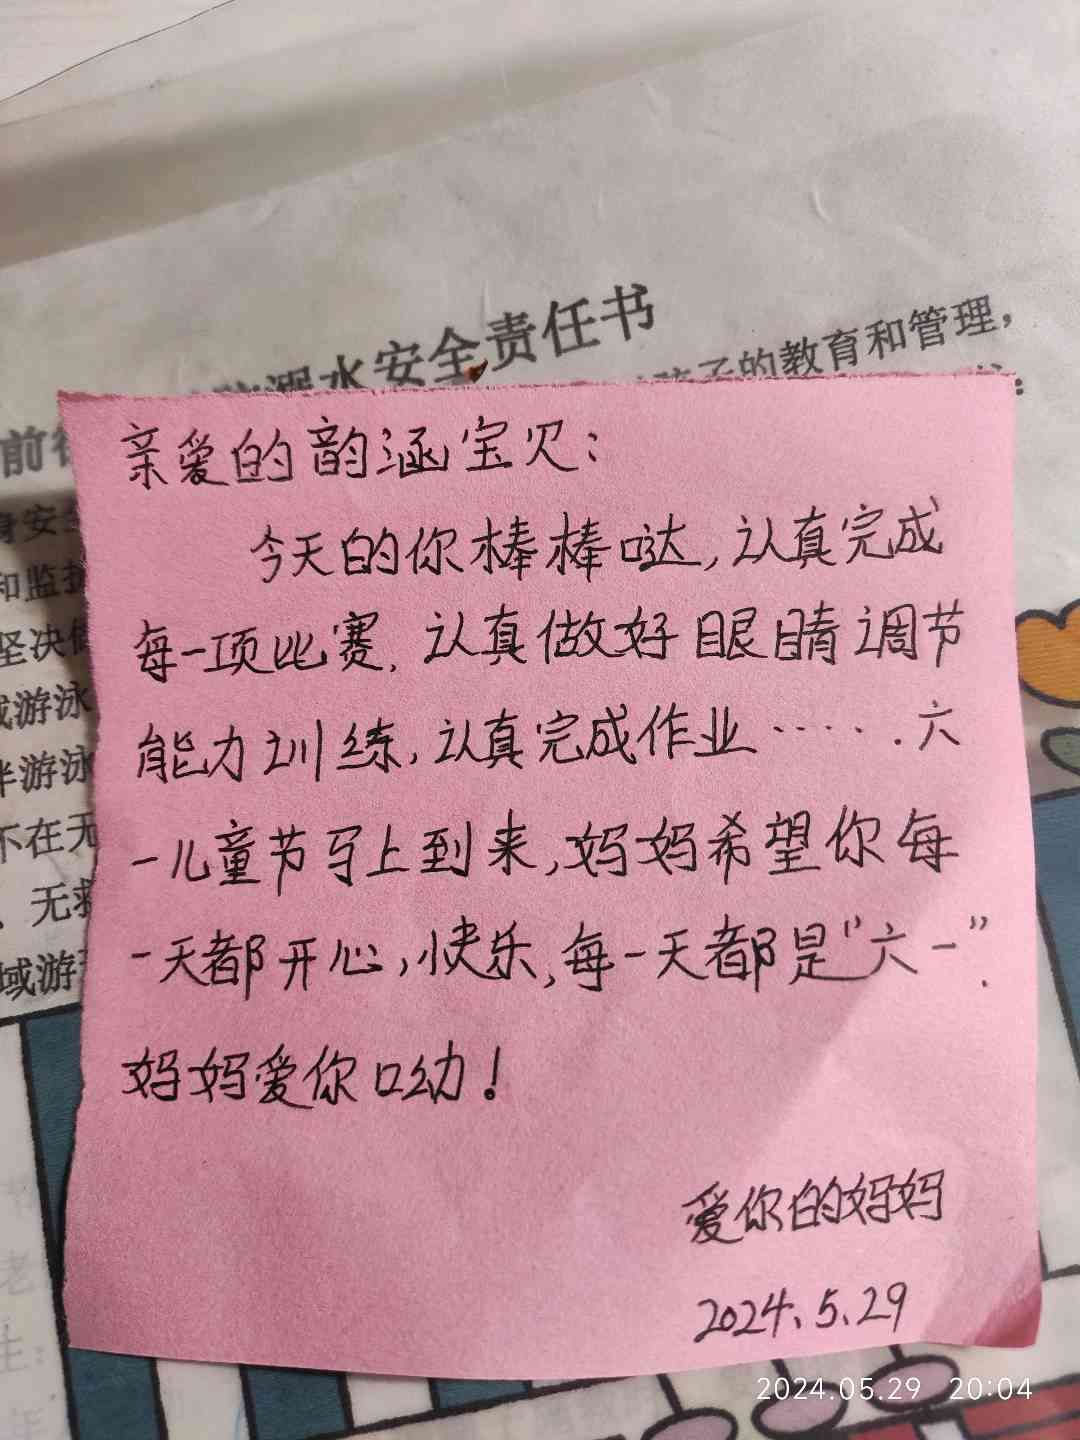 溺水安全责任书
孩子的教育和管理，
前
身安全
和监护
坚决
游泳
伴游泳
不在无
、无救
域游
亲爱的韵涵宝贝：
今天的你棒棒哒，认真完成
每一项比赛，认真做好眼睛调节
能力训练，认真完成作业……．六
一儿童节马上到来，妈妈希望你每
一天都开心，快乐，每一天都是“六一”．
妈妈爱你呦！
爱你的妈妈
2024.5.29
老
生：
2024.05.29 20:04